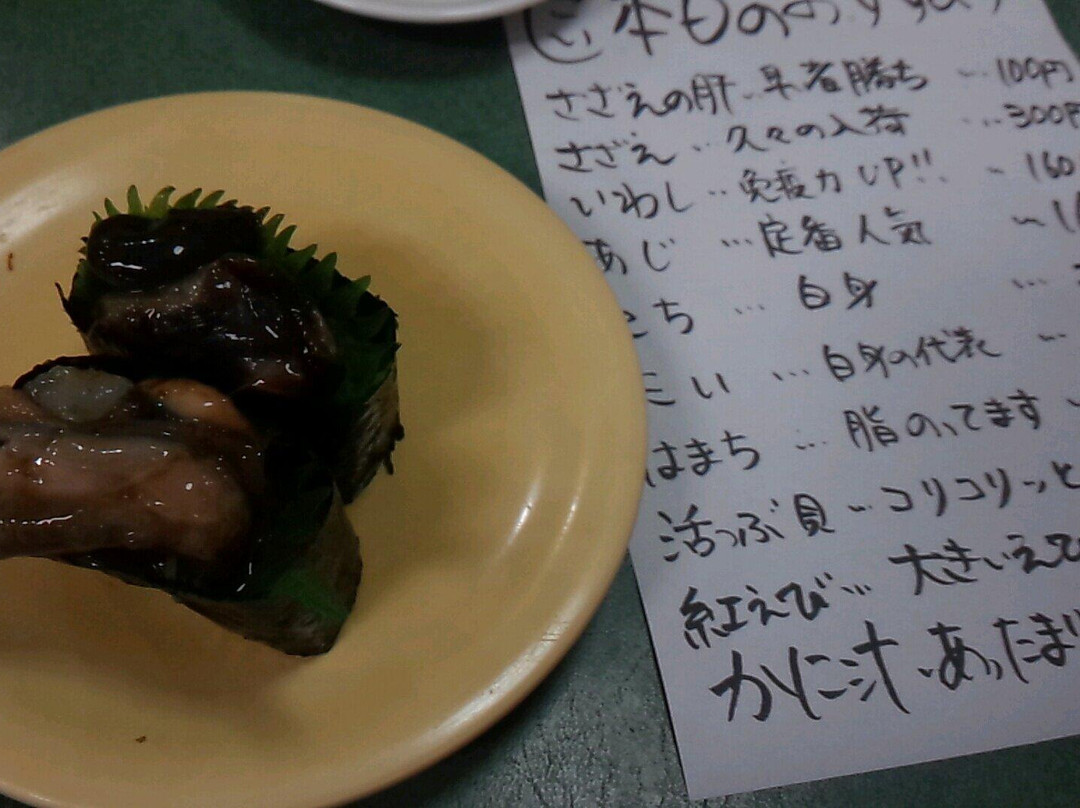 本ものおすすめ
さざえの肝…早者勝ち …100円
さざえ…久々の入荷 …300円
いわし…免疫力UP!! …160
あじ …定番人気
ち … 白身 …
い … 白身の代表 …
はまち … 脂のってます
活つぶ貝…コリコリッと
紅えび… 大きいえ
かに汁…あったま